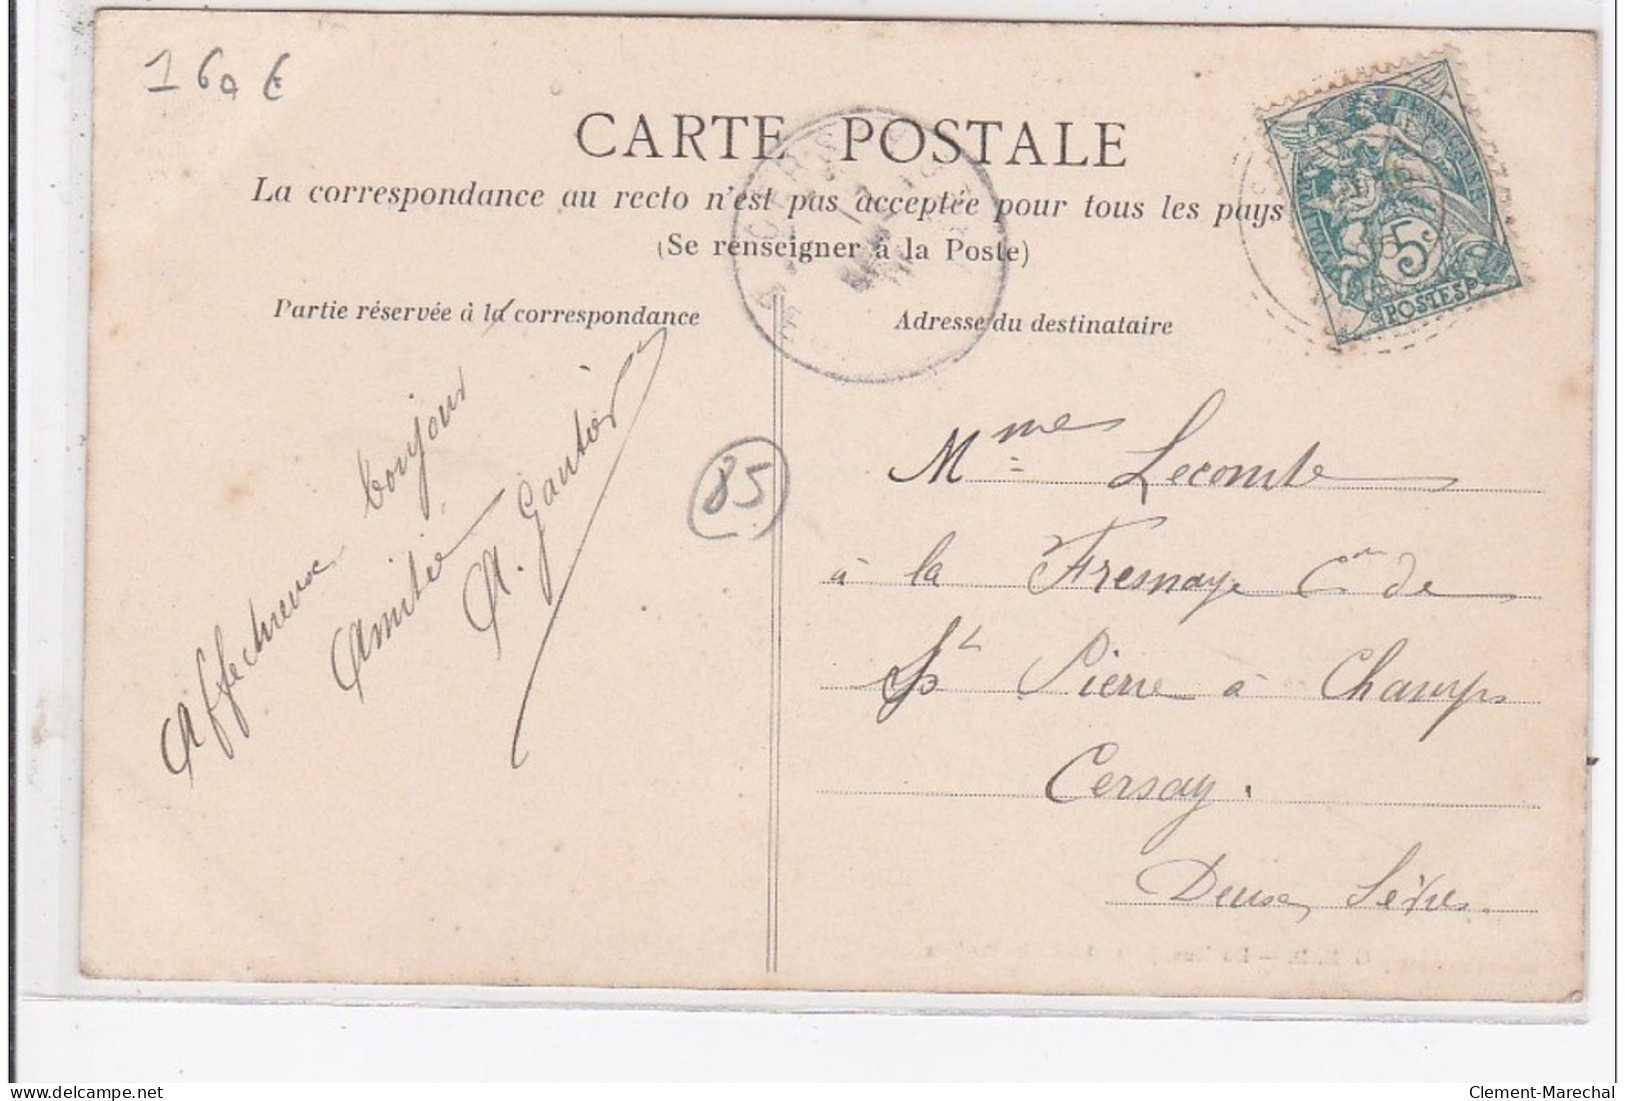 160 €
CARTE POSTALE
La correspondance au recto n'est pas acceptée pour tous les pays
(Se renseigner à la Poste)
Partie réservée à la correspondance
Adresse du destinataire
Affectueux bonjour
Amitié
A. Gautier
85
5c
POSTES
Mmes Lecomte
à la Fresnaye Cne de
St Pierre à Champs
Cersay.
Deux Sèvres.
www.delcampe.net
Clement-Marechal